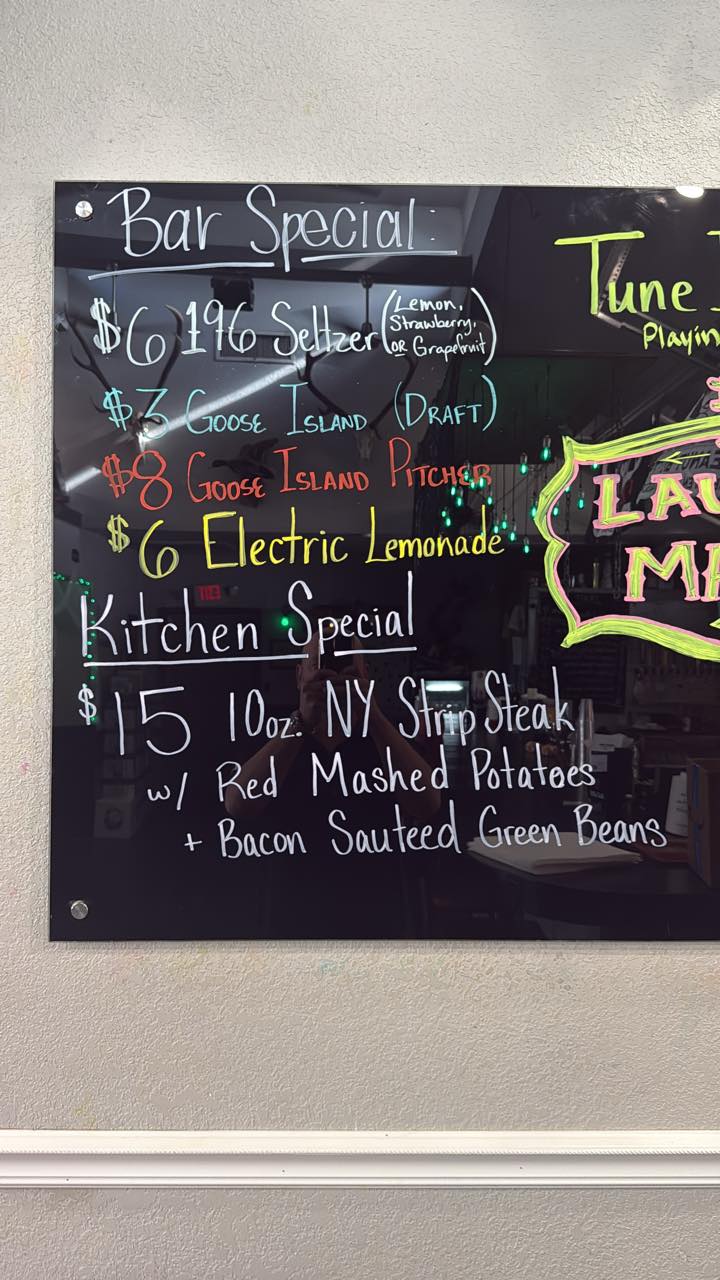 Bar Special:
$6 196 Seltzer (Lemon, Strawberry, OR Grapefruit)
$3 Goose Island (Draft)
$8 Goose Island Pitcher
$6 Electric Lemonade
Kitchen Special
$15 10oz. NY Strip Steak
w/ Red Mashed Potatoes
+ Bacon Sauteed Green Beans
Tune
Playin
LAU
MA